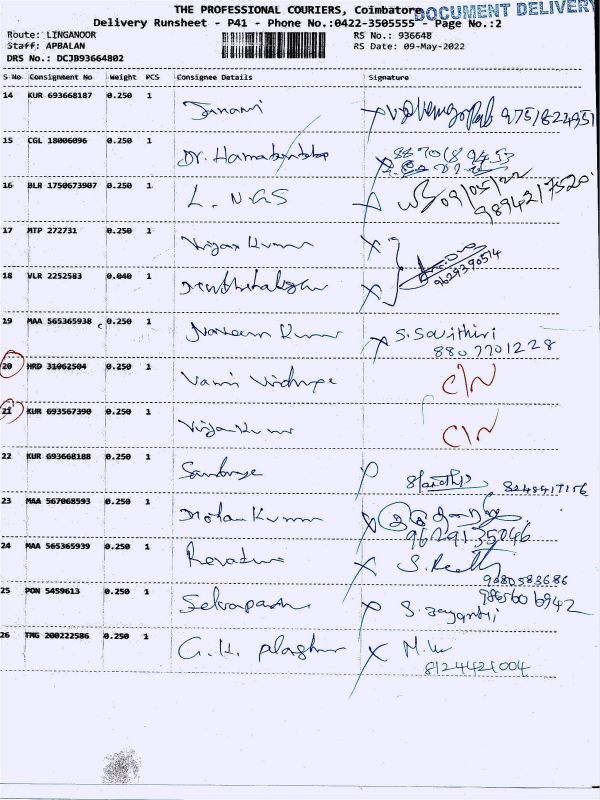 THE PROFESSIONAL COURIERS, Coimbatore
DOCUMENT DELIVERY
Delivery Runsheet - P41 - Phone No.:0422-3505555 - Page No.:2
Route: LINGANOOR
RS No.: 936648
Staff: APBALAN
RS Date: 09-May-2022
DRS No.: DCJB93664802
S No Consignment No Weight PCS Consignee Details Signature
14 KUR 693668187 0.250 1 Janani 9751824951
15 CGL 18006096 0.250 1 Dr.
16 BLR 1750673907 0.250 1 L. N.G.S 09/05/22
9894217520
17 MTP 272731 0.250 1 Vijay Kumar
9629390514
18 VLR 2252583 0.040 1
19 MAA 565365938 c 0.250 1 Naveen Kumar S. Savithiri
8807701228
20 HRD 31062504 0.250 1 C/N
21 KUR 693567390 0.250 1 Vijay Kumar C/N
22 KUR 693668188 0.250 1
23 MAA 567068593 0.250 1 Mohan Kumar
9629135046
24 MAA 565365939 0.250 1 Revathi
9080583686
25 PON 5459613 0.250 1 S. Jayanthi
26 TMG 200222586 0.250 1 G.K.
8124421004